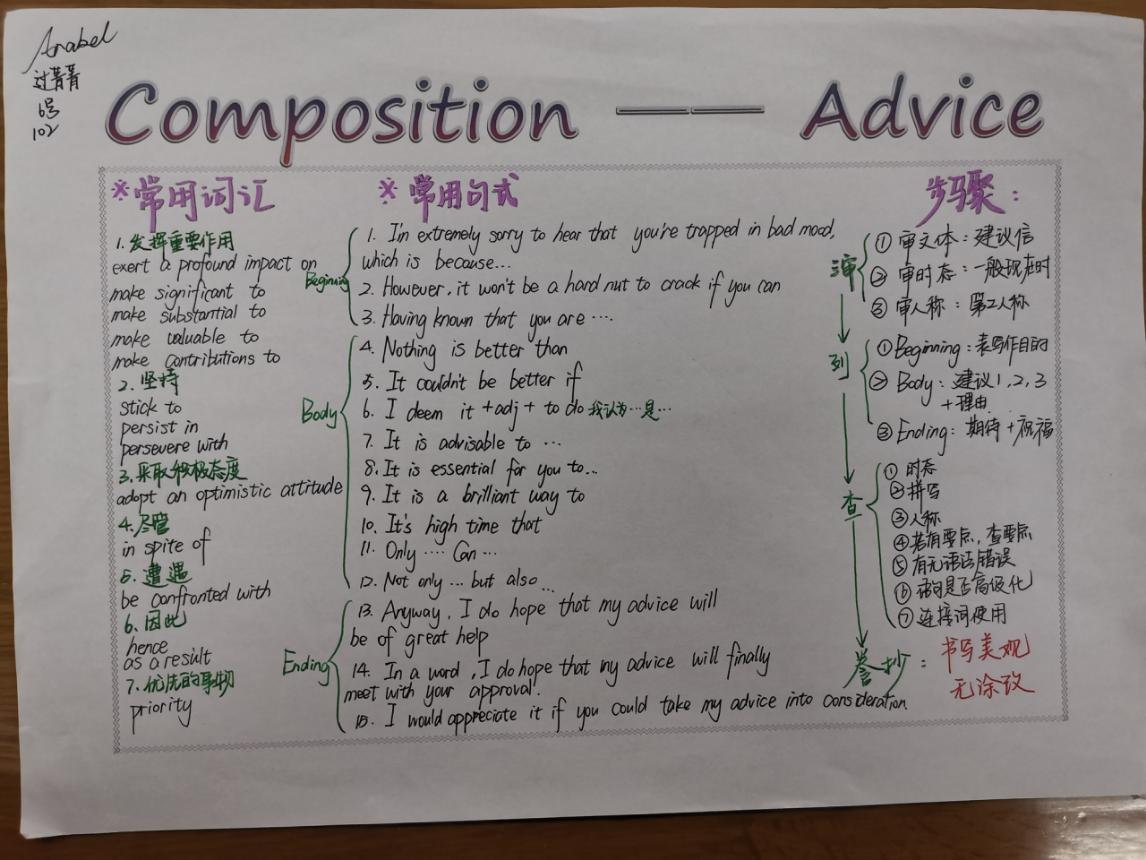 Anabel
过菁菁
6号
102
Composition —— Advice
※常用词汇
1.发挥重要作用
exert a profound impact on
make significant to
make substantial to
make valuable to
make contributions to
2.坚持
stick to
persist in
persevere with
3.采取积极态度
adopt an optimistic attitude
4.尽管
in spite of
5.遭遇
be confronted with
6.因此
hence
as a result
7.优先的事物
priority
※常用句式
Beginning
1. I'm extremely sorry to hear that you're trapped in bad mood,
which is because...
2. However, it won't be a hard nut to crack if you can
3. Having known that you are ....
Body
4. Nothing is better than
5. It couldn't be better if
6. I deem it +adj + to do 我认为…是…
7. It is advisable to ...
8. It is essential for you to...
9. It is a brilliant way to
10. It's high time that
11. Only .... Can ...
12. Not only ... but also...
Ending
13. Anyway, I do hope that my advice will
be of great help
14. In a word, I do hope that my advice will finally
meet with your approval.
15. I would appreciate it if you could take my advice into consideration.
步骤：
审
①审文体：建议信
②审时态：一般现在时
③审人称：第二人称
列
①Beginning：表写作目的
②Body：建议1,2,3
+理由
③Ending：期待+祝福
查
①时态
②拼写
③人称
④若有要点，查要点
⑤有无语法错误
⑥词是否高级化
⑦连接词使用
誊抄：书写美观
无涂改